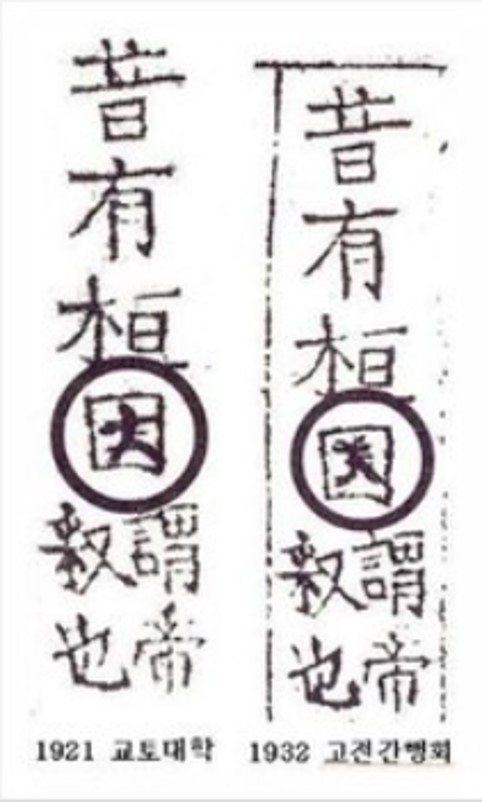 昔有桓因
謂帝
也
1921 교토대학
昔有桓
謂帝
也
1932 고전간행회